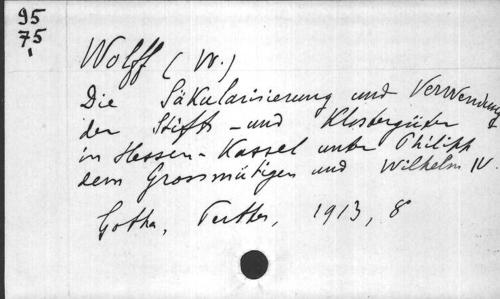 95
75
Wolff (W.)
Die Säkularisierung und Verwendung
der Stifts- und Klostergüter
in Hessen-Kassel unter Philipp
dem Grossmütigen und Wilhelm IV.
Gotha, Perthes, 1913, 8